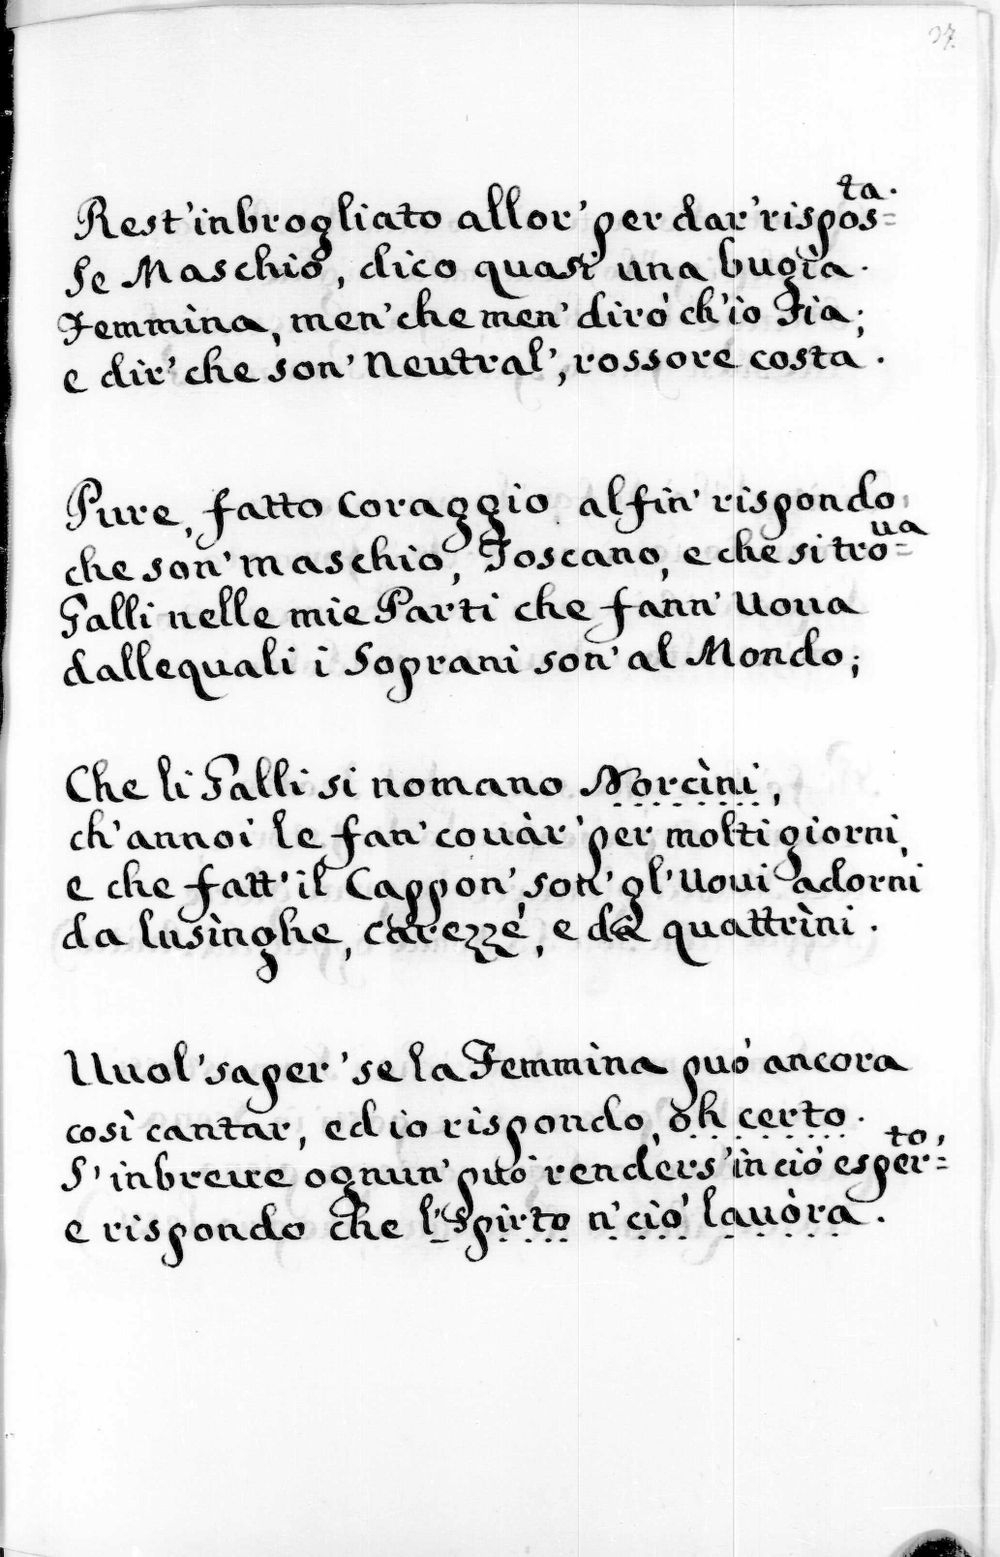 37.
Rest' inbrogliato allor' per dar' rispos=ta.
Se Maschio, dico quasi una bugìa.
Femmìna, men' che men' diró ch'io Sia;
e dir' che son' Neutral', rossore costa.
Pure, fatto Coraggio alfin' rispondo,
che son' maschio, Toscano, e che si tro=ua
Galli nelle mie Parti che fann' Uoua
dallequali i Soprani son' al Mondo;
Che li Galli si nomano Norcìni,
ch' a noi le fan' couàr' per molti giorni,
e che fatt' il Cappon', son' gl' Uoui adorni
da lusìnghe, carezze, e da quattrìni.
Uuol' saper' se la Femmìna puó ancora
così cantar, ed io rispondo, oh certo.
S' inbreue ognun' puó renders' in ció esper=to,
e rispondo che l'Spirto n' ció lauòra.